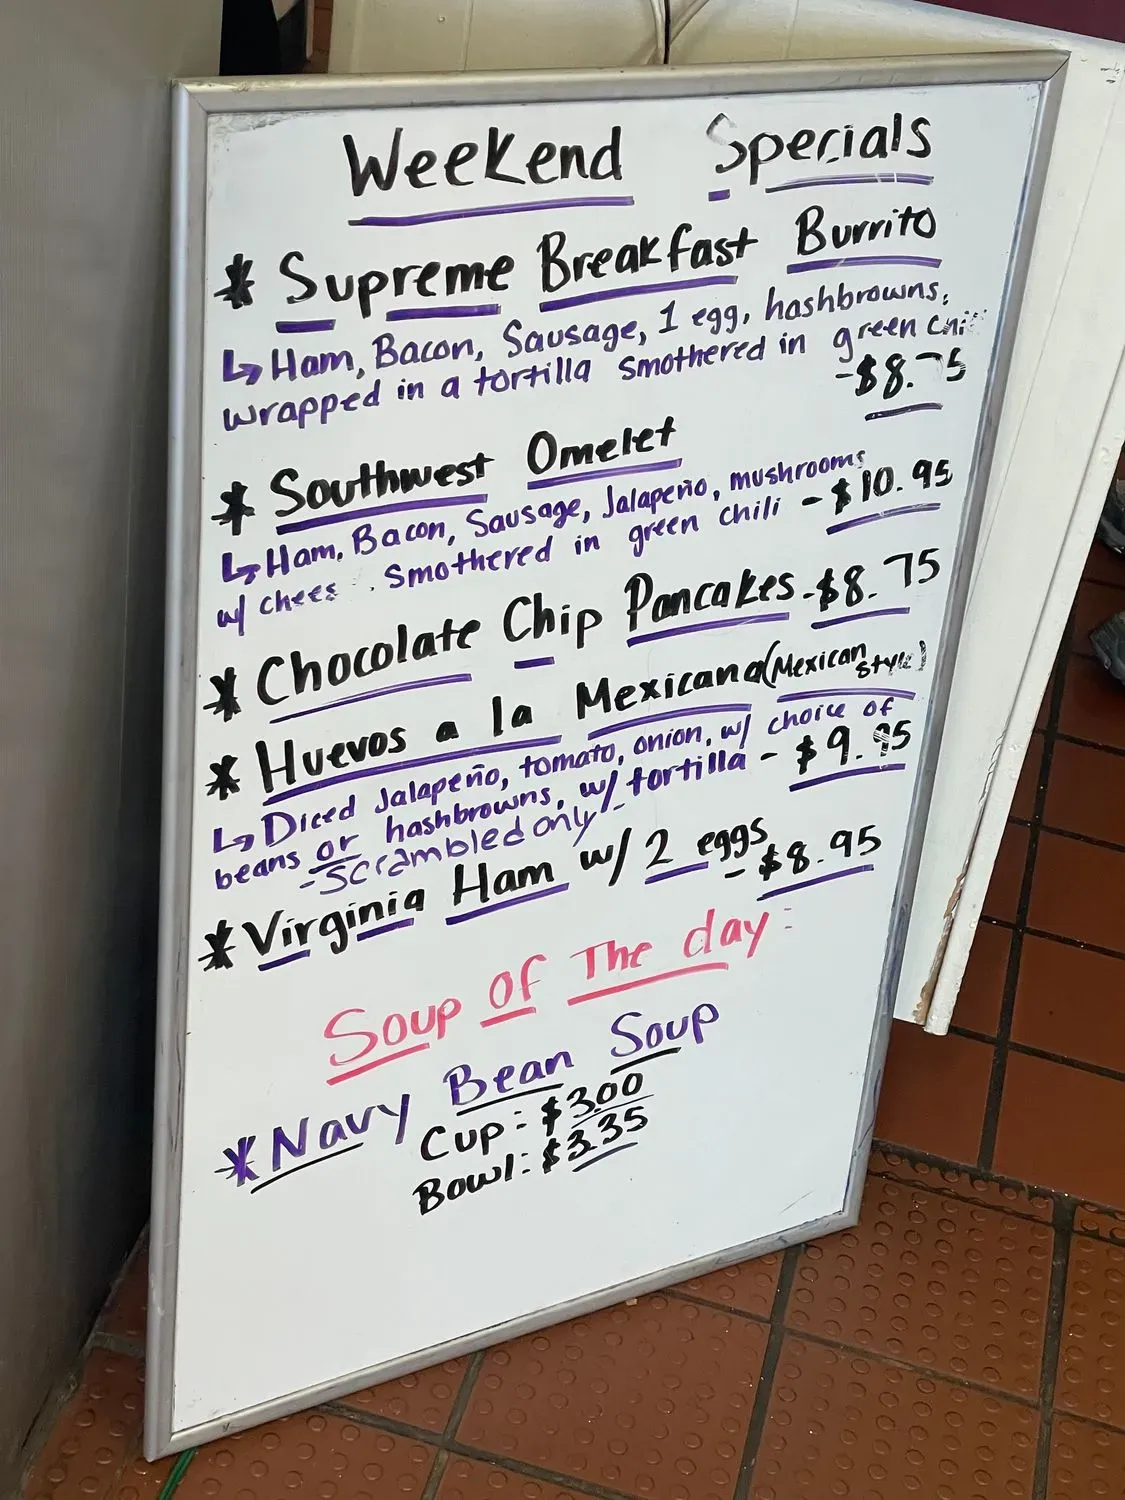 Weekend Specials
* Supreme Breakfast Burrito
↳ Ham, Bacon, Sausage, 1 egg, hashbrowns,
wrapped in a tortilla smothered in green chili
-$8.75
* Southwest Omelet
↳ Ham, Bacon, Sausage, Jalapeño, mushrooms
w/ cheese. smothered in green chili - $10.95
* Chocolate Chip Pancakes - $8.75
* Huevos a la Mexicana (Mexican style)
↳ Diced Jalapeño, tomato, onion, w/ choice of
beans or hashbrowns, w/ tortilla - $9.95
- Scrambled only -
* Virginia Ham w/ 2 eggs - $8.95
Soup of The day:
* Navy Bean Soup
Cup: $3.00
Bowl: $3.35